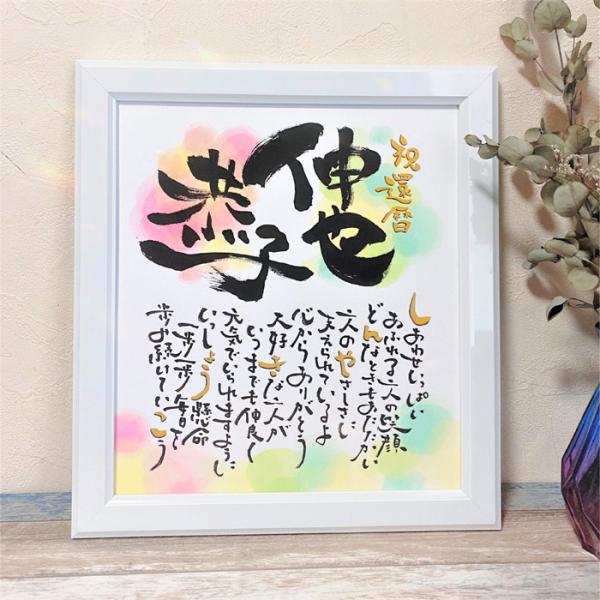 祝還暦
伸也
恭子
しあわせいっぱい
あふれる二人の笑顔
どんなときもあたたかい
二人のやさしさに
支えられているよ
心からありがとう
大好きな二人が
いつまでも仲良く
元気でいられますように
いっしょう懸命
一歩一歩毎日を
歩み続けていこう